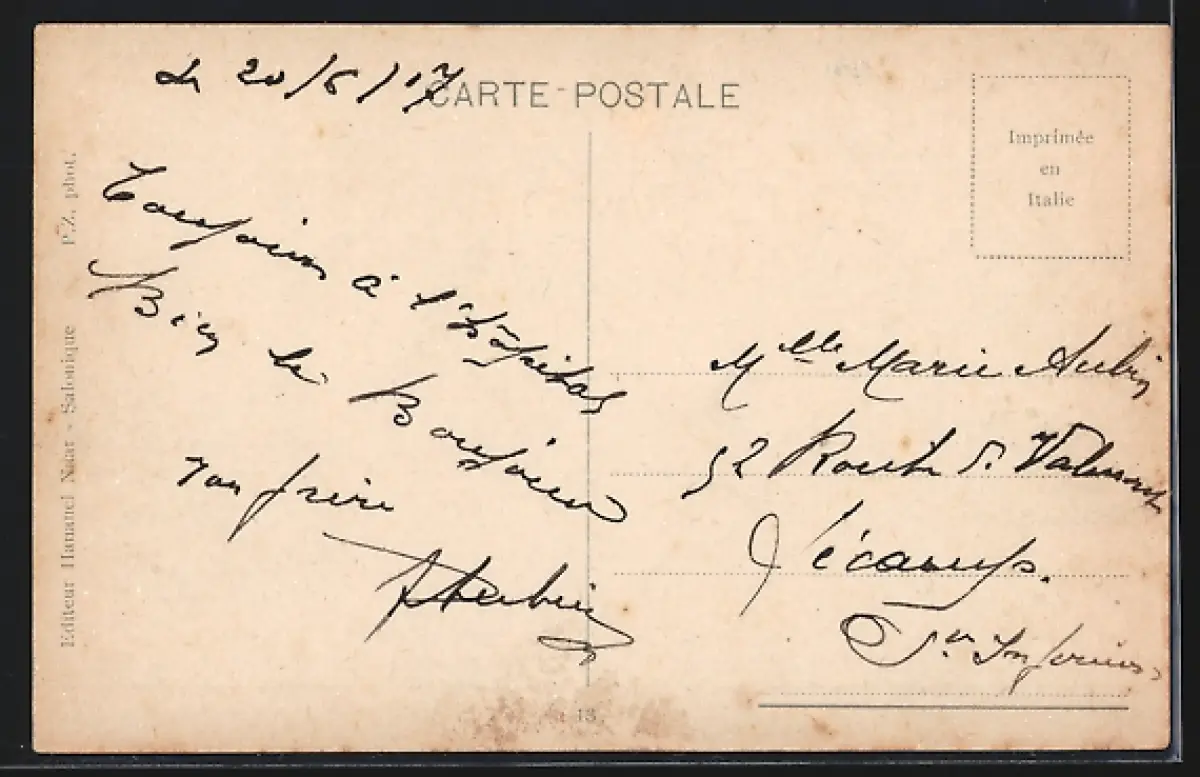 Le 20/6/17
CARTE-POSTALE
Imprimée
en
Italie
Toujours à l'hôpital
Bien le Bonjour
Ton frère
Aubin
Mlle Marie Aubin
52 Route de Valmont
Fécamp.
Sne Inférieure
Editeur Hananel Naar - Salonique P.Z. phot.
13